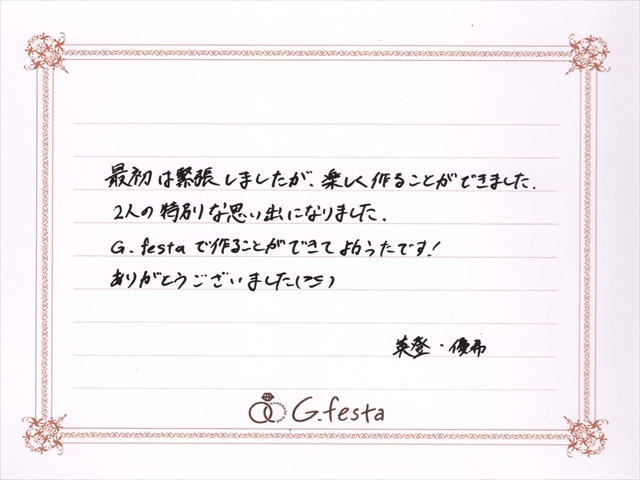 最初は緊張しましたが、楽しく作ることができました.
2人の特別な思い出になりました.
G.festaで作ることができてよかったです!
ありがとうございました(^^)
英登・優希
G.festa